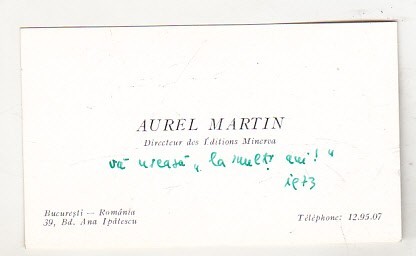 AUREL MARTIN
Directeur des Éditions Minerva
vă urează „la mulți ani!"
1973
București — România
39, Bd. Ana Ipătescu
Téléphone: 12.95.07